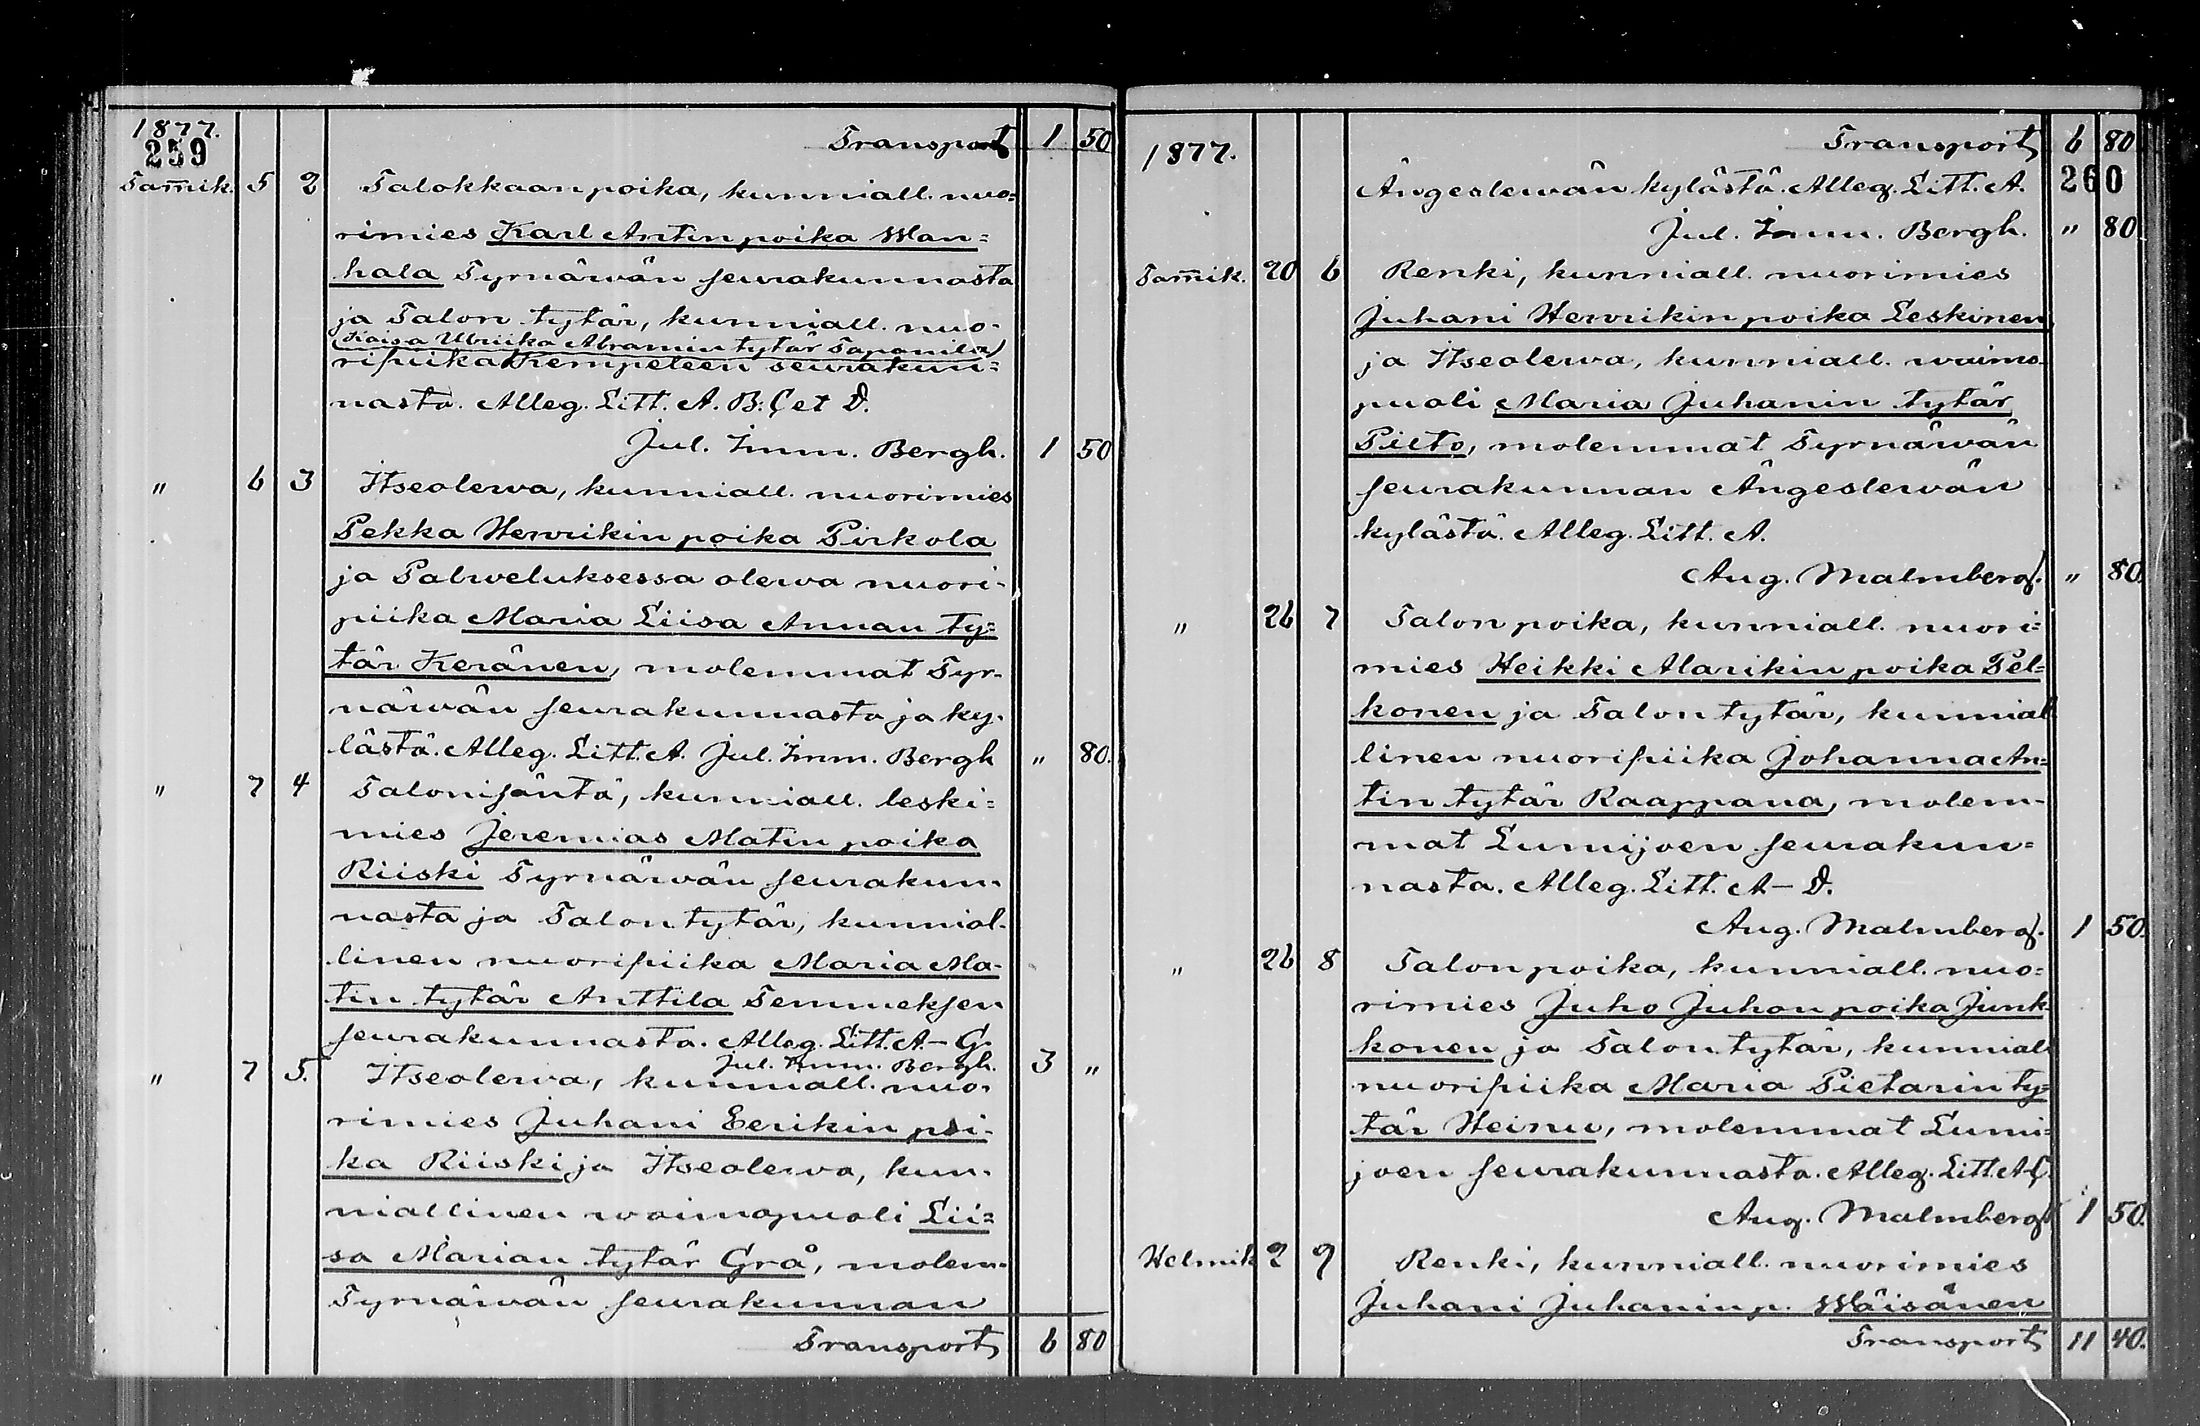 1877.
259
Transport 1 50
Tam̄ik. 5 2 Talokkaan poika, kunniall. nuo=
rimies Karl Antin poika Wan=
hala Tyrnäwän seurakunnasta
ja Talon tytär, kunniall. nuo-
(Kaisa Ulriika Abramin tytär Tapanila)
ripiika Kempeleen seurakun=
nasta. Alleg. Litt. A. B. C et D.
Jul. Imm. Bergh. 1 50
" 6 3 Itseolewa, kunniall. nuorimies
Pekka Henrikin poika Pirkola
ja Palweluksessa olewa nuori-
piika Maria Liisa Annan ty=
tär Keränen, molemmat Tyr-
näwän seurakunnasta ja ky-
lästä. Alleg. Litt. A. Jul. Imm. Bergh " 80.
" 7 4 Talonisäntä, kunniall. leski=
mies Jeremias Matin poika
Riiski Tyrnäwän seurakun-
nasta ja Talon tytär, kunnial-
linen nuoripiika Maria Ma-
tin tytär Anttila Temmeksen
seurakunnasta. Alleg. Litt. A.- G.
Jul. Imm. Bergh. 3 "
" 7 5. Itseolewa, kunniall. nuo-
rimies Juhani Eerikin poi-
ka Riiski ja Itseolewa, kun-
niallinen waimopuoli Lii=
sa Marian tytär Grå, molem-
Tyrnäwän seurakunnan
Transport 6 80
1877.
Transport 6 80
Ängeslewän kylästä. Alleg. Litt. A. 260
Jul. Imm. Bergh. " 80
Tam̄ik. 20 6 Renki, kunniall. nuorimies
Juhani Henrikin poika Leskinen
ja Itseolewa, kunniall. waimo-
puoli Maria Juhanin tytär
Pieto, molemmat Tyrnäwän
seurakunnan Ängeslewän
kylästä. Alleg. Litt. A.
Aug. Malmberg. " 80.
" 26 7 Talon poika, kunniall. nuori=
mies Heikki Marikin poika Pel=
konen ja Talon tytär, kunnial
linen nuoripiika Johanna An=
tin tytär Raappana, molem-
mat Lumijoen seurakun=
nasta. Alleg. Litt. A - D.
Aug. Malmberg. 1 50.
" 26 8 Talon poika, kunniall. nuo=
rimies Juho Juhon poika Junk-
konen ja Talon tytär, kunniall
nuoripiika Maria Pietarin ty=
tär Heinu, molemmat Lumi=
joen seurakunnasta. Alleg. Litt. A-C.
Aug. Malmberg 1 50.
Helmik 2 9 Renki, kunniall. nuorimies
Juhani Juhanin p. Wäisänen
Transport 11 40.